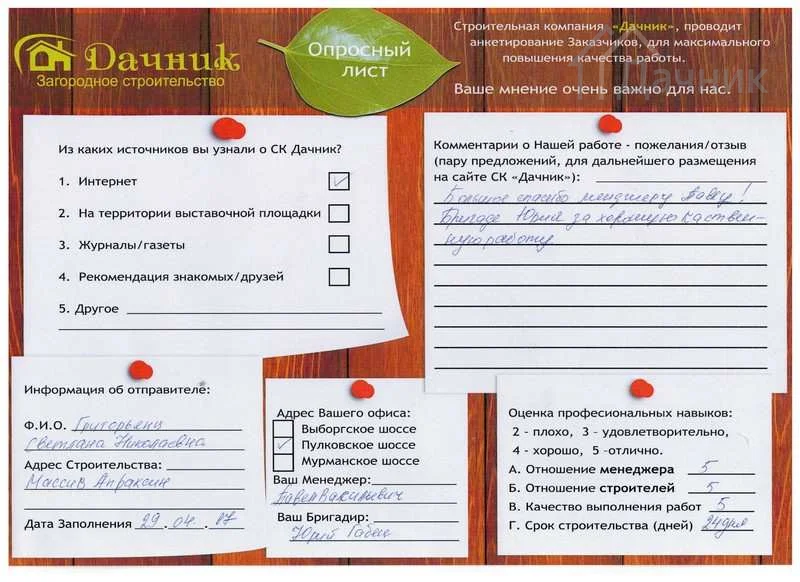 Дачник
Загородное строительство
Опросный
лист
Строительная компания «Дачник», проводит
анкетирование Заказчиков, для максимального
повышения качества работы.
Ваше мнение очень важно для нас.
Дачник
Из каких источников вы узнали о СК Дачник?
1. Интернет
2. На территории выставочной площадки
3. Журналы/газеты
4. Рекомендация знакомых/друзей
5. Другое
Комментарии о Нашей работе - пожелания/отзыв
(пару предложений, для дальнейшего размещения
на сайте СК «Дачник»):
Большое спасибо менджеру Павлу!
Бригаде Юрия за хорошую каствен-
ную работу
Информация об отправителе:
Ф.И.О. Григорьянц
Светлана Николаевна
Адрес Строительства:
Массив Апраксин
Дата Заполнения 29.04.17
Адрес Вашего офиса:
Выборгское шоссе
Пулковское шоссе
Мурманское шоссе
Ваш Менеджер:
Павел
Ваш Бригадир:
Юрий
Оценка професиональных навыков:
2 - плохо, 3 - удовлетворительно,
4 - хорошо, 5 -отлично.
А. Отношение менеджера 5
Б. Отношение строителей 5
В. Качество выполнения работ 5
Г. Срок строительства (дней) 24 дня